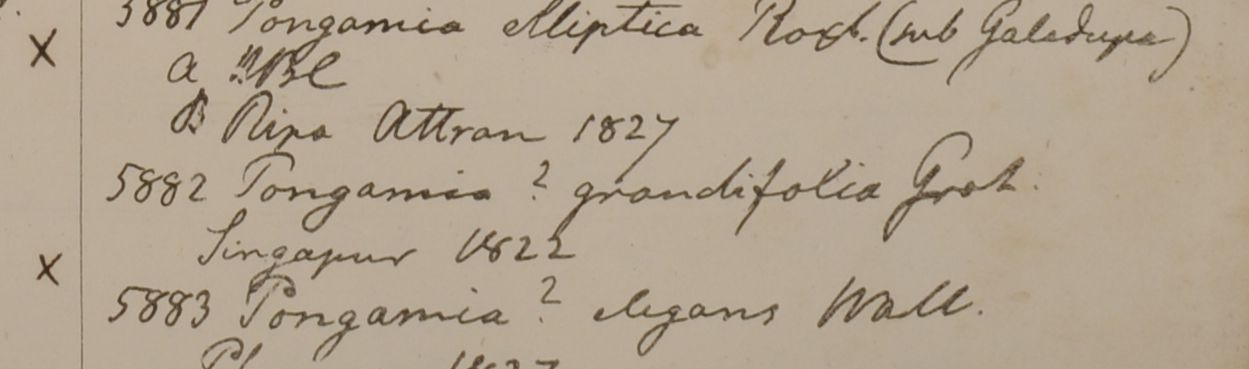 5881 Pongamia elliptica Roxb. (sub Galedupa)
a HBC
B Ripa Attran 1827
5882 Pongamia ? grandifolia Grah.
Singapur 1822
5883 Pongamia ? elegans Wall.
1827